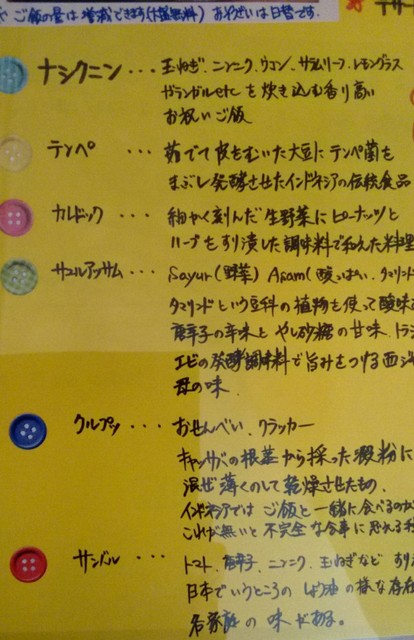 ご飯の量は増減できます(大盛無料) おやさいは日替です.
デザー
ナシクニン・・・ 玉ねぎ、ニンニク、ウコン、サラムリーフ、レモングラス
ガランガルetc を炊き込む香り高い
お祝いご飯
テンペ ・・・ 茹でて皮をむいた大豆に テンペ菌を
まぶし発酵させたインドネシアの伝統食品
カルドック ・・・ 細かく刻んだ生野菜にピーナッツと
ハーブをすり潰した調味料で和えた料理
サユルアッサム・・・ Sayur(野菜) Asam(酸っぱい、タマリンド
タマリンドという豆科の植物を使って酸味
唐辛子の辛味と やし砂糖の甘味、トラシ
エビの発酵調味料で旨みをつける西ジャ
母の味.
クルプッ・・・・ おせんべい、クラッカー
キャッサバの根茎から採った澱粉に
混ぜ薄くのして乾燥させたもの.
インドネシアでは ご飯と一緒に食べるのが
これが無いと不完全な食事に思える
サンバル ・・・ トマト、唐辛子、ニンニク、玉ねぎなど すり
日本でいうところの しょう油の様な存在
各家庭の 味がある。